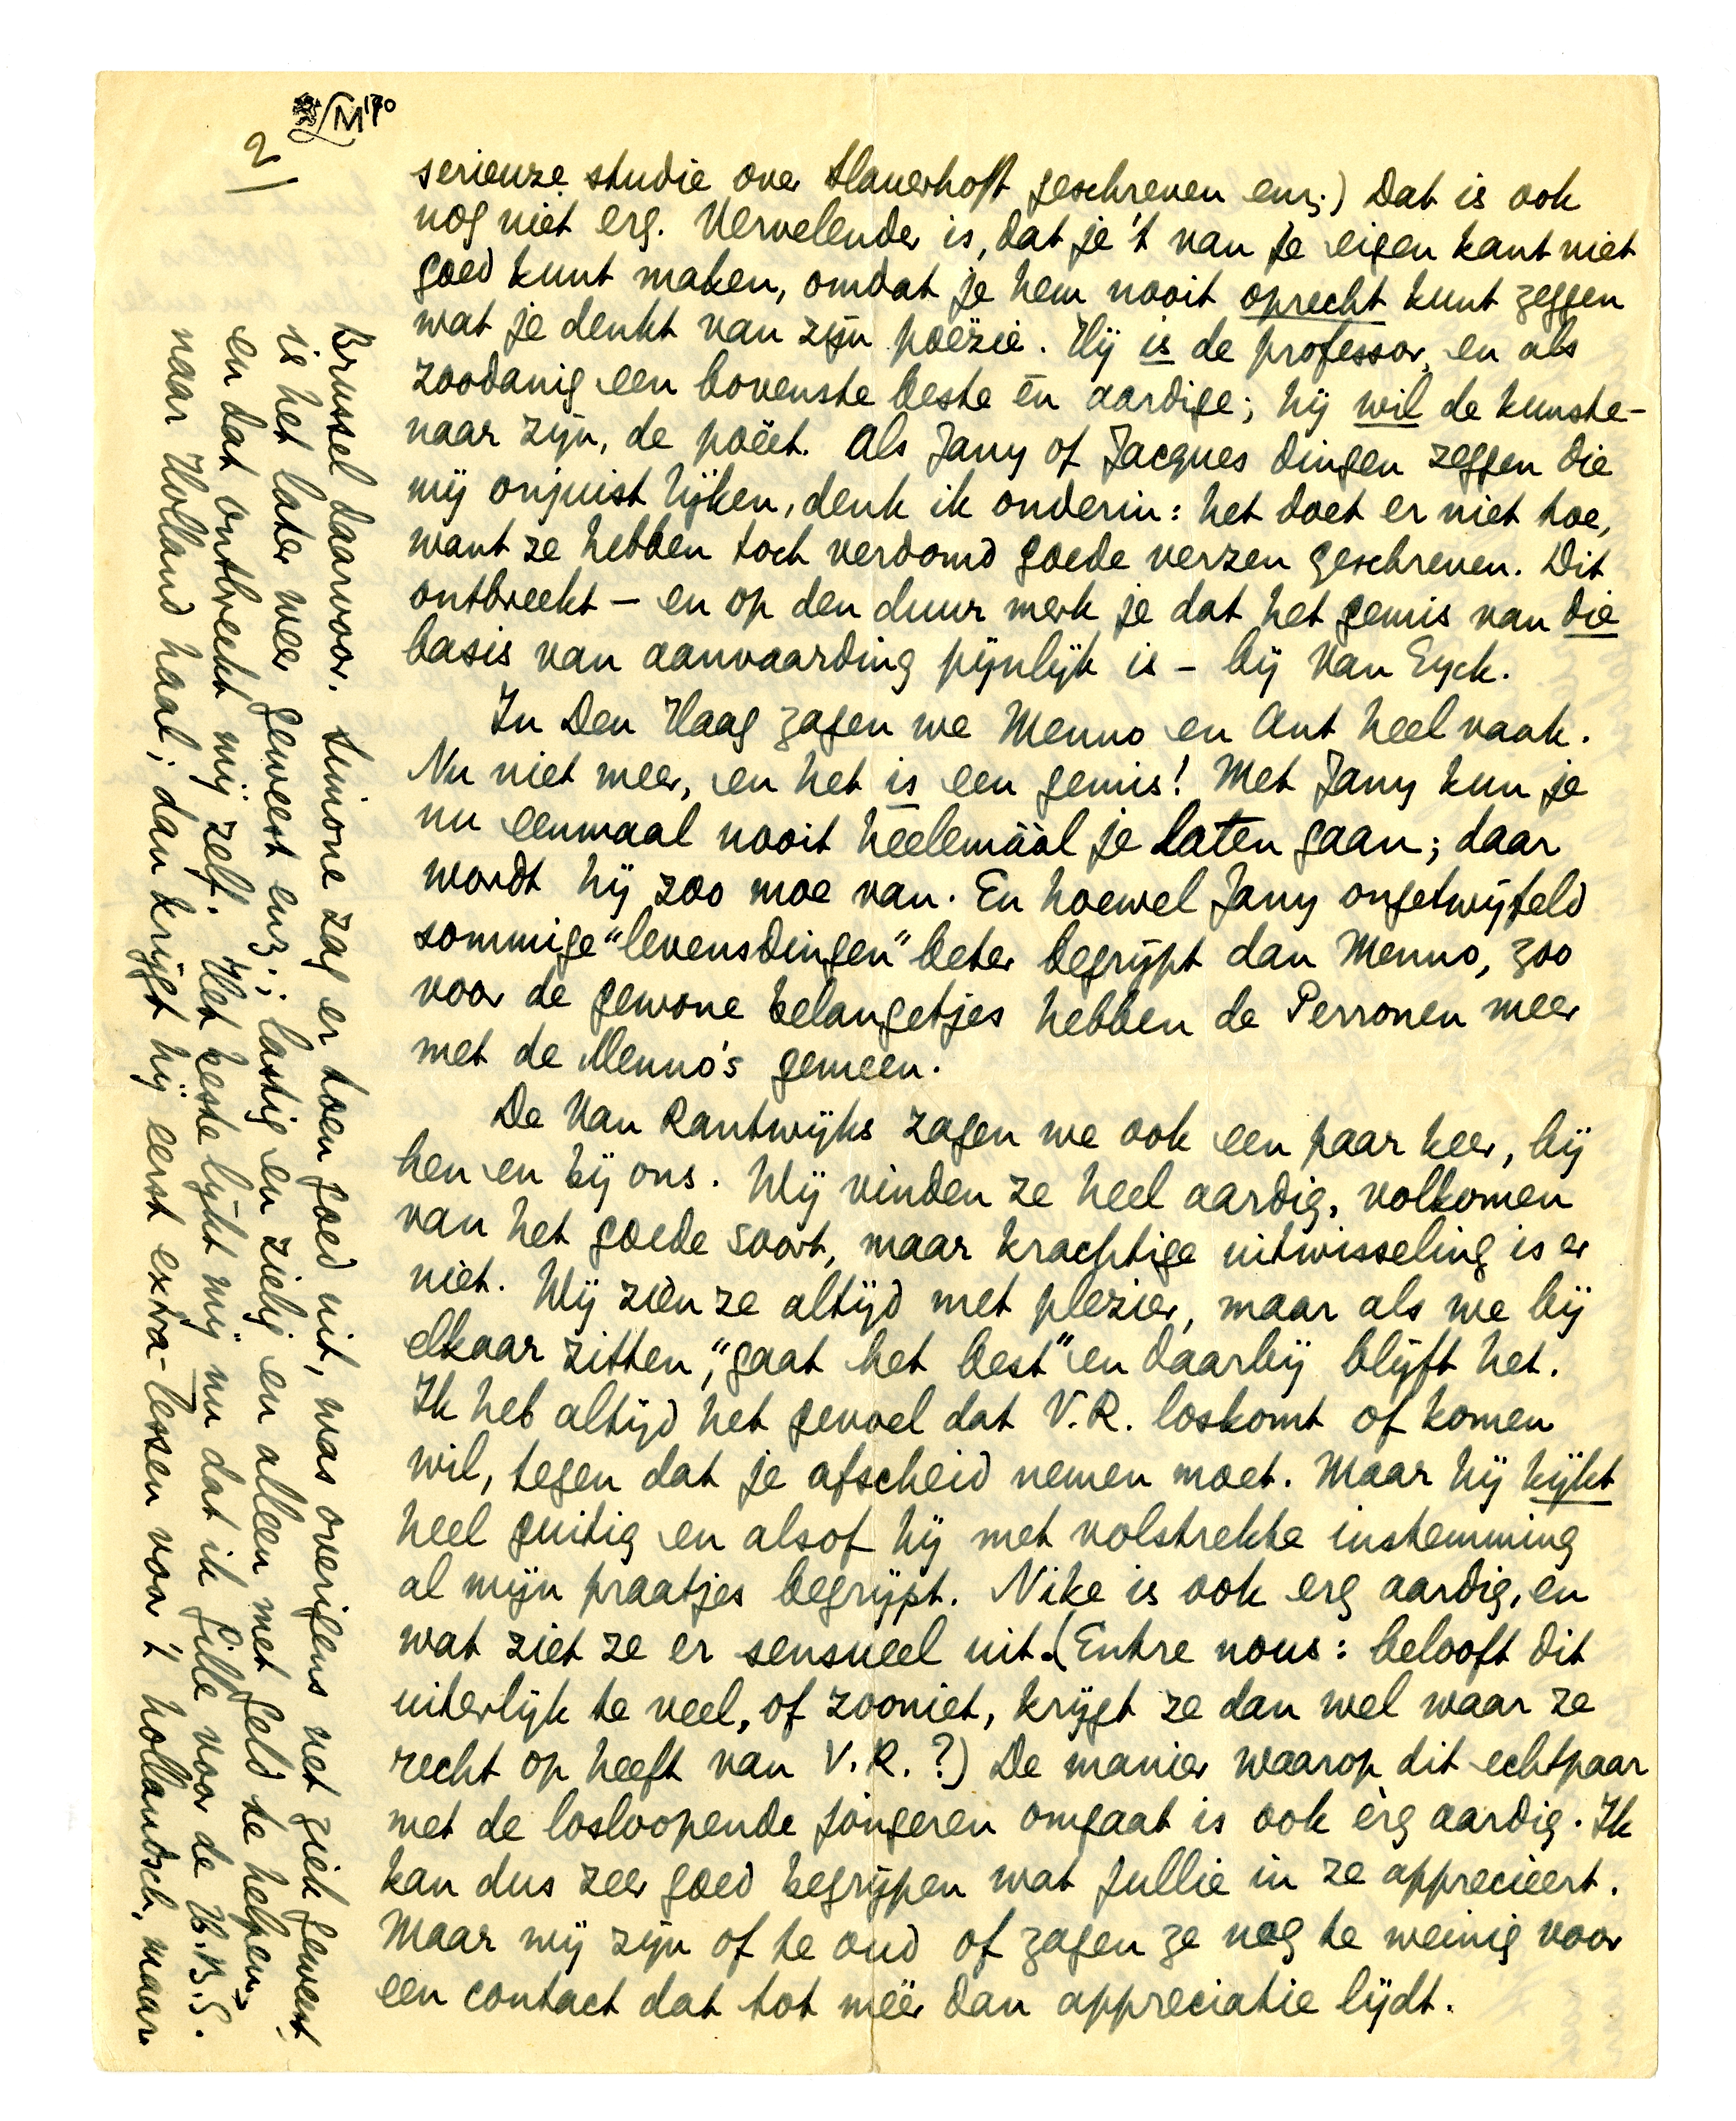 LM 170
2/
serieuze studie over Slauerhoff geschreven enz.) Dat is ook
nog niet erg. Vervelender is, dat je 't van je eigen kant niet
goed kunt maken, omdat je hem nooit oprecht kunt zeggen
wat je denkt van zijn poëzie. Hij is de professor, en als
zoodanig een bovenste beste én aardige; hij wil de kunste-
naar zijn, de poëet. Als Jany of Jacques dingen zeggen die
mij onjuist lijken, denk ik onderin: het doet er niet toe,
want ze hebben toch verdomd goede verzen geschreven. Dit
ontbreekt – en op den duur merk je dat het gemis van die
basis van aanvaarding pijnlijk is – bij Van Eyck.
In Den Haag zagen we Menno en Ant heel vaak.
Nu niet meer, en het is een gemis! Met Jany kun je
nu eenmaal nooit heelemáál je laten gaan; daar
wordt hij zoo moe van. En hoewel Jany ongetwijfeld
sommige "levensdingen" beter begrijpt dan Menno, zoo
voor de gewone belangetjes hebben de Perronen meer
met de Menno's gemeen.
De Van Rantwijks zagen we ook een paar keer, bij
hen en bij ons. Wij vinden ze heel aardig, volkomen
van het goede soort, maar krachtige uitwisseling is er
niet. Wij zien ze altijd met plezier, maar als we bij
elkaar zitten, "gaat het best" en daarbij blijft het.
Ik heb altijd het gevoel dat V.R. loskomt of komen
wil, tegen dat je afscheid nemen moet. Maar hij kijkt
heel guitig en alsof hij met volstrekte instemming
al mijn praatjes begrijpt. Nike is ook erg aardig, en
wat ziet ze er sensueel uit. (Entre nous: belooft dit
uiterlijk te veel, of zooniet, krijgt ze dan wel waar ze
recht op heeft van V.R.?) De manier waarop dit echtpaar
met de losloopende jongeren omgaat is ook èrg aardig. Ik
kan dus zeer goed begrijpen wat jullie in ze apprecieert.
Maar wij zijn of te oud of zagen ze nog te weinig voor
een contact dat tot méér dan appreciatie lijdt.
Brussel daarvoor. Simone zag er toen goed uit, was overigens net ziek geweest,
is het later weer geweest enz.; lastig en zielig en alleen met geld te helpen,
en dat ontbreekt mij zelf. Het beste lijkt mij nu dat ik Gille voor de H.B.S.
naar Holland haal; dan krijgt hij eerst extra-lessen voor 't hollandsch, maar